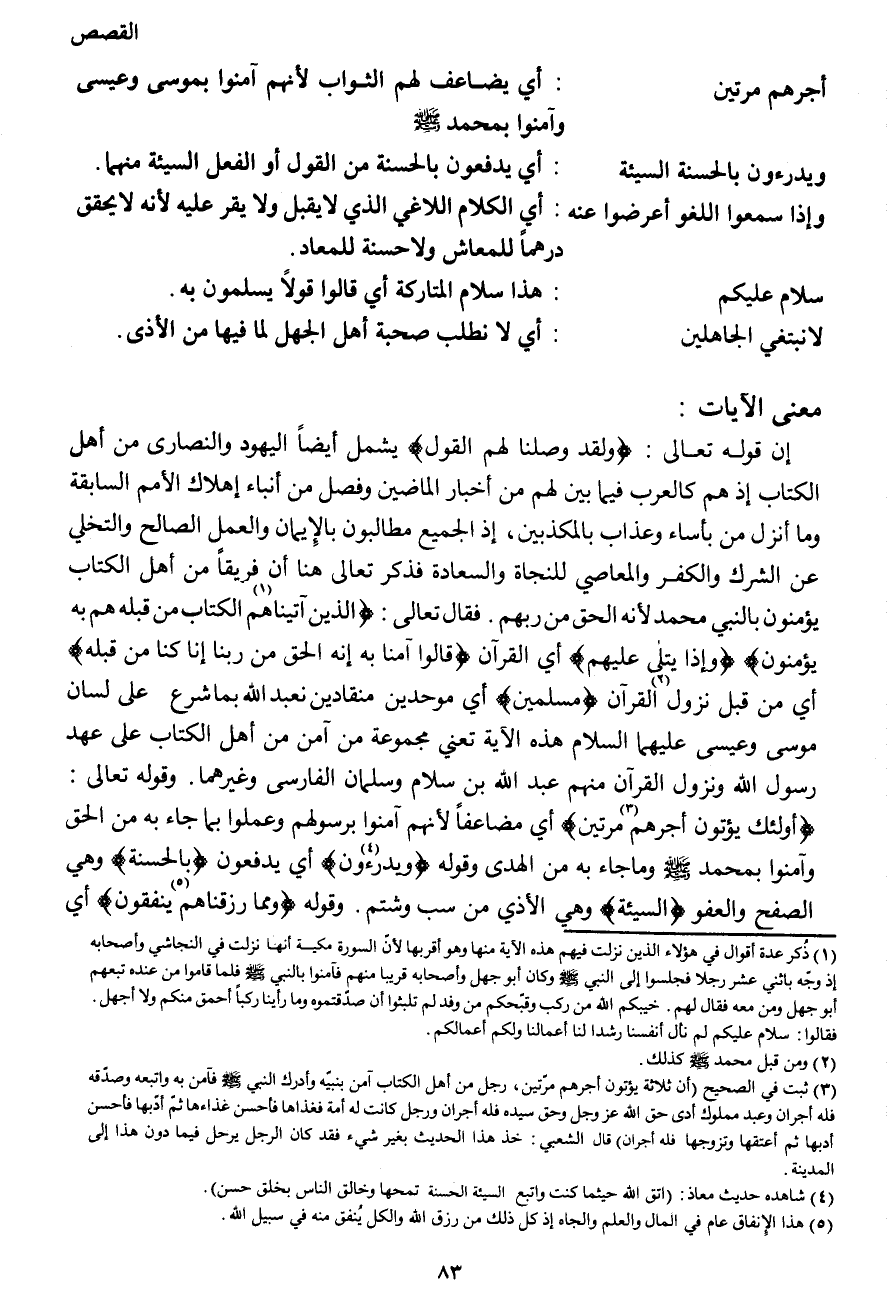 القصص
أجرهم مرتين : أي يضاعف لهم الثواب لأنهم آمنوا بموسى وعيسى
وآمنوا بمحمد ﷺ
ويدرءون بالحسنة السيئة : أي يدفعون بالحسنة من القول أو الفعل السيئة منهما.
وإذا سمعوا اللغو أعرضوا عنه : أي الكلام اللاغي الذي لايقبل ولا يقر عليه لأنه لايحقق
درهماً للمعاش ولاحسنة للمعاد.
سلام عليكم : هذا سلام المتاركة أي قالوا قولاً يسلمون به.
لانبتغي الجاهلين : أي لا نطلب صحبة أهل الجهل لما فيها من الأذى.
معنى الآيات :
إن قوله تعالى : ﴿ولقد وصلنا لهم القول﴾ يشمل أيضاً اليهود والنصارى من أهل
الكتاب إذ هم كالعرب فيما بين لهم من أخبار الماضين وفصل من أنباء إهلاك الأمم السابقة
وما أنزل من بأساء وعذاب بالمكذبين، إذ الجميع مطالبون بالإيمان والعمل الصالح والتخلي
عن الشرك والكفر والمعاصي للنجاة والسعادة فذكر تعالى هنا أن فريقاً من أهل الكتاب
يؤمنون بالنبي محمد لأنه الحق من ربهم. فقال تعالى : ﴿الذين آتيناهم(١) الكتاب من قبله هم به
يؤمنون﴾ ﴿وإذا يتلى عليهم﴾ أي القرآن ﴿قالوا آمنا به إنه الحق من ربنا إنا كنا من قبله﴾
أي من قبل نزول(٢) القرآن ﴿مسلمين﴾ أي موحدين منقادين نعبد الله بما شرع على لسان
موسى وعيسى عليهما السلام هذه الآية تعني مجموعة من آمن من أهل الكتاب على عهد
رسول الله ونزول القرآن منهم عبد الله بن سلام وسلمان الفارسى وغيرهما. وقوله تعالى :
﴿أولئك يؤتون أجرهم(٣) مرتين﴾ أي مضاعفاً لأنهم آمنوا برسولهم وعملوا بما جاء به من الحق
وآمنوا بمحمد ﷺ وماجاء به من الهدى وقوله ﴿ويدرءون(٤)﴾ أي يدفعون ﴿بالحسنة﴾ وهي
الصفح والعفو ﴿السيئة﴾ وهي الأذي من سب وشتم. وقوله ﴿ومما رزقناهم(٥) ينفقون﴾ أي
(١) ذُكر عدة أقوال في هؤلاء الذين نزلت فيهم هذه الآية منها وهو أقربها لأنّ السورة مكية أنها نزلت في النجاشي وأصحابه
إذ وجّه باثني عشر رجلا فجلسوا إلى النبي ﷺ وكان أبو جهل وأصحابه قريبا منهم فآمنوا بالنبي ﷺ فلما قاموا من عنده تبعهم
أبو جهل ومن معه فقال لهم. خيبكم الله من ركب وقبّحكم من وفد لم تلبثوا أن صدّقتموه وما رأينا ركباً أحمق منكم ولا أجهل.
فقالوا: سلام عليكم لم نأل أنفسنا رشدا لنا أعمالنا ولكم أعمالكم.
(٢) ومن قبل محمد ﷺ كذلك.
(٣) ثبت في الصحيح (أن ثلاثة يؤتون أجرهم مرّتين، رجل من أهل الكتاب آمن بنبيّه وأدرك النبي ﷺ فآمن به واتبعه وصدّقه
فله أجران وعبد مملوك أدى حق الله عز وجل وحق سيده فله أجران ورجل كانت له أمة فغذاها فأحسن غذاءها ثمّ أدّبها فأحسن
أدبها ثم أعتقها وتزوجها فله أجران) قال الشعبي: خذ هذا الحديث بغير شيء فقد كان الرجل يرحل فيما دون هذا إلى
المدينة.
(٤) شاهده حديث معاذ: (اتق الله حيثما كنت واتبع السيئة الحسنة تمحها وخالق الناس بخلق حسن).
(٥) هذا الإنفاق عام في المال والعلم والجاه إذ كل ذلك من رزق الله والكل يُنفق منه في سبيل الله.
٨٣